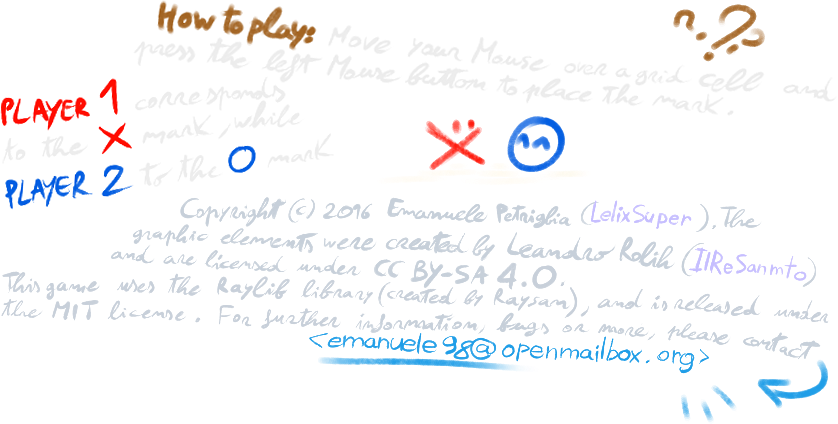 How to play: Move your Mouse over a grid cell and
press the left Mouse button to place the mark.
PLAYER 1 corresponds
to the X mark, while
PLAYER 2 to the O mark
Copyright (c) 2016 Emanuele Petriglia (LelixSuper). The
graphic elements were created by Leandro Rolih (IlReSanmto)
and are licensed under CC BY-SA 4.0.
This game uses the Raylib library (created by Raysan), and is released under
the MIT license. For further information, bugs or more, please contact
<emanuele98@openmailbox.org>